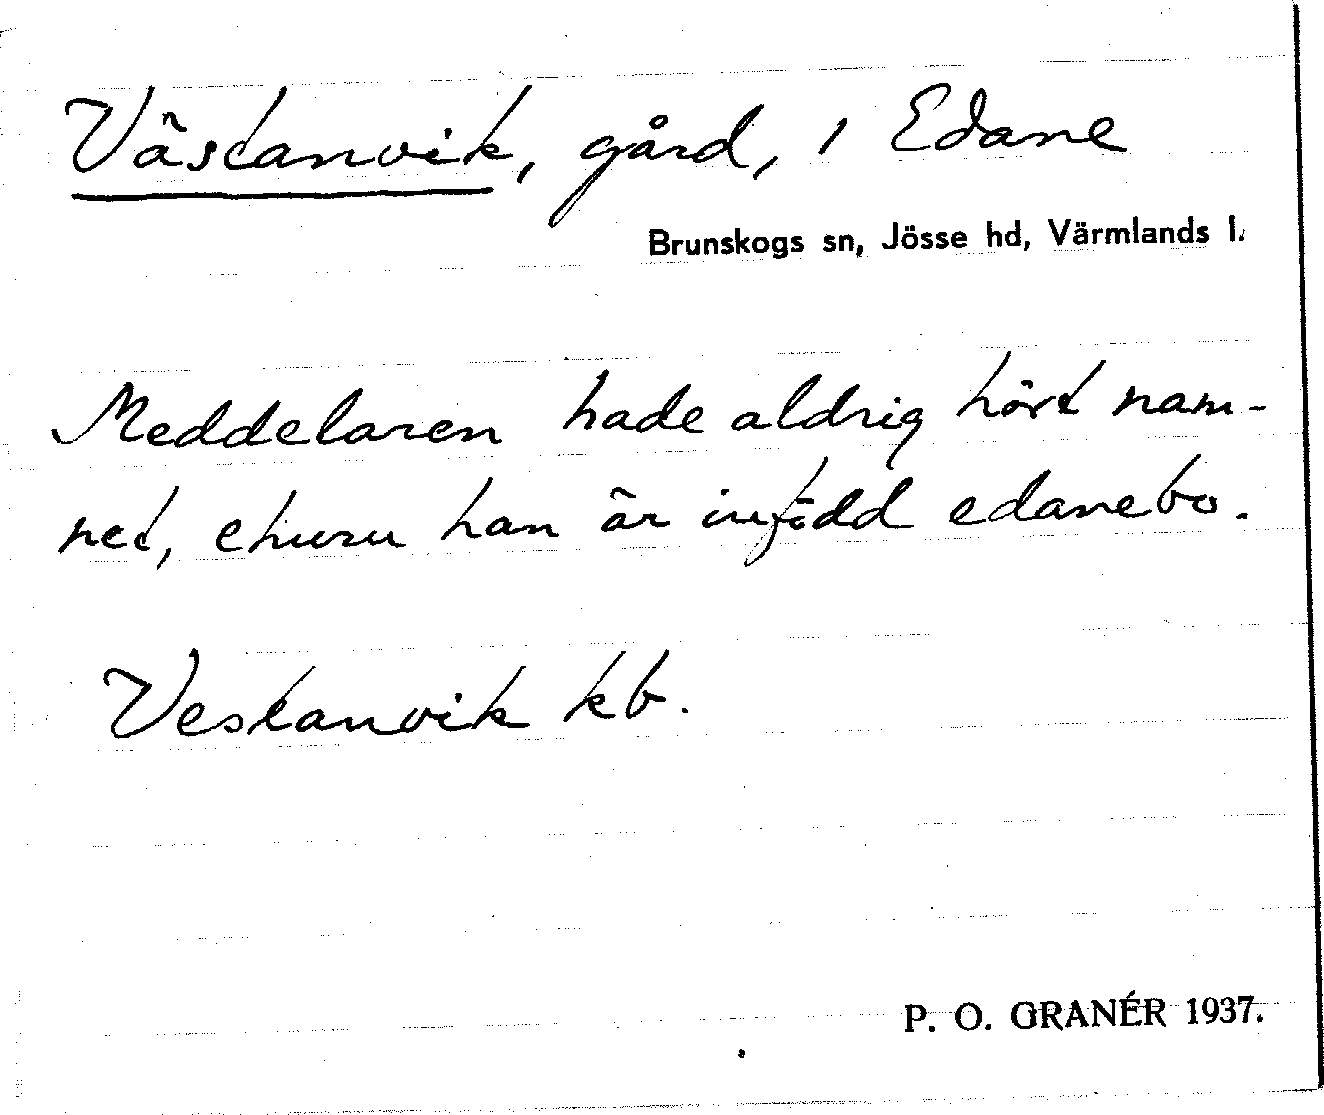 Västanvik, gård, i Edane
Brunskogs sn, Jösse hd, Värmlands l.
Meddelaren hade aldrig hört nam-
net, ehuru han är infödd edanebo.
Vestanvik kb.
P. O. GRANÉR 1937.